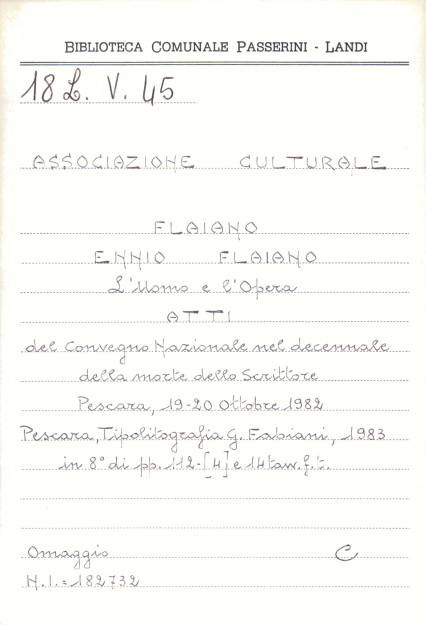 BIBLIOTECA COMUNALE PASSERINI - LANDI
18 L. V. 45
ASSOCIAZIONE CULTURALE
FLAIANO
ENNIO FLAIANO
L'Uomo e l'Opera
ATTI
del Convegno Nazionale nel decennale
della morte dello Scrittore
Pescara, 19-20 Ottobre 1982
Pescara, Tipolitografia G. Fabiani, 1983
in 8° di pp. 112-[4] e 14 tav. f. t.
Omaggio C
N.I. = 182732